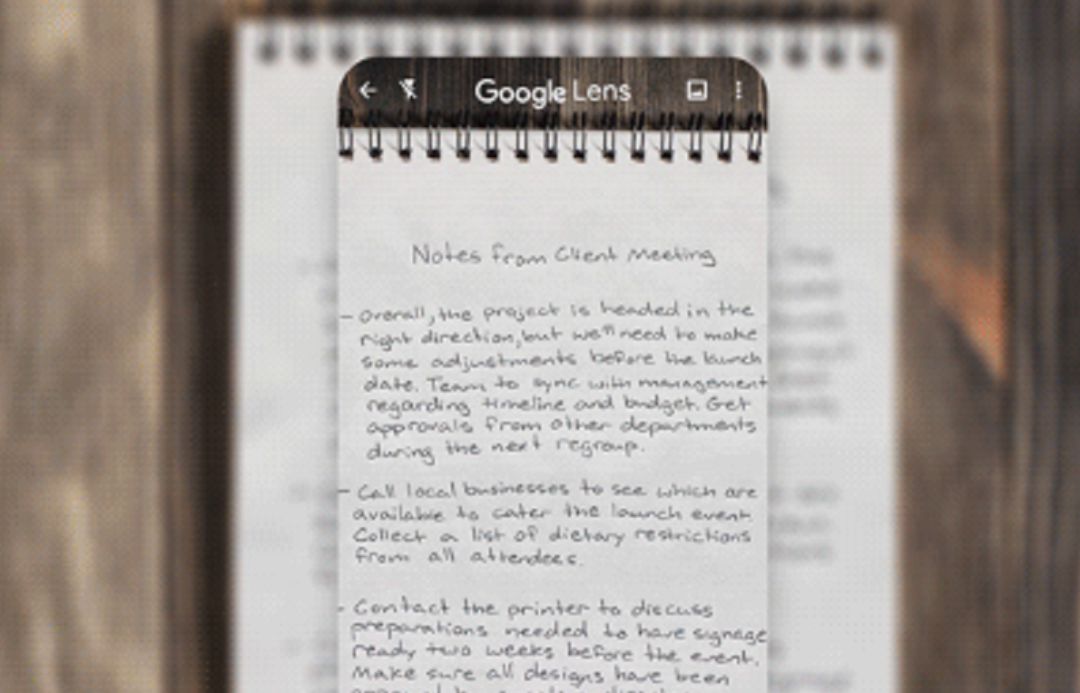 Google Lens
Notes from Client Meeting
- Overall, the project is headed in the
right direction, but we'll need to make
some adjustments before the launch
date. Team to sync with management
regarding timeline and budget. Get
approvals from other departments
during the next regroup.
- Call local businesses to see which are
available to cater the launch event.
Collect a list of dietary restrictions
from all attendees.
- Contact the printer to discuss
preparations needed to have signage
ready two weeks before the event.
Make sure all designs have been